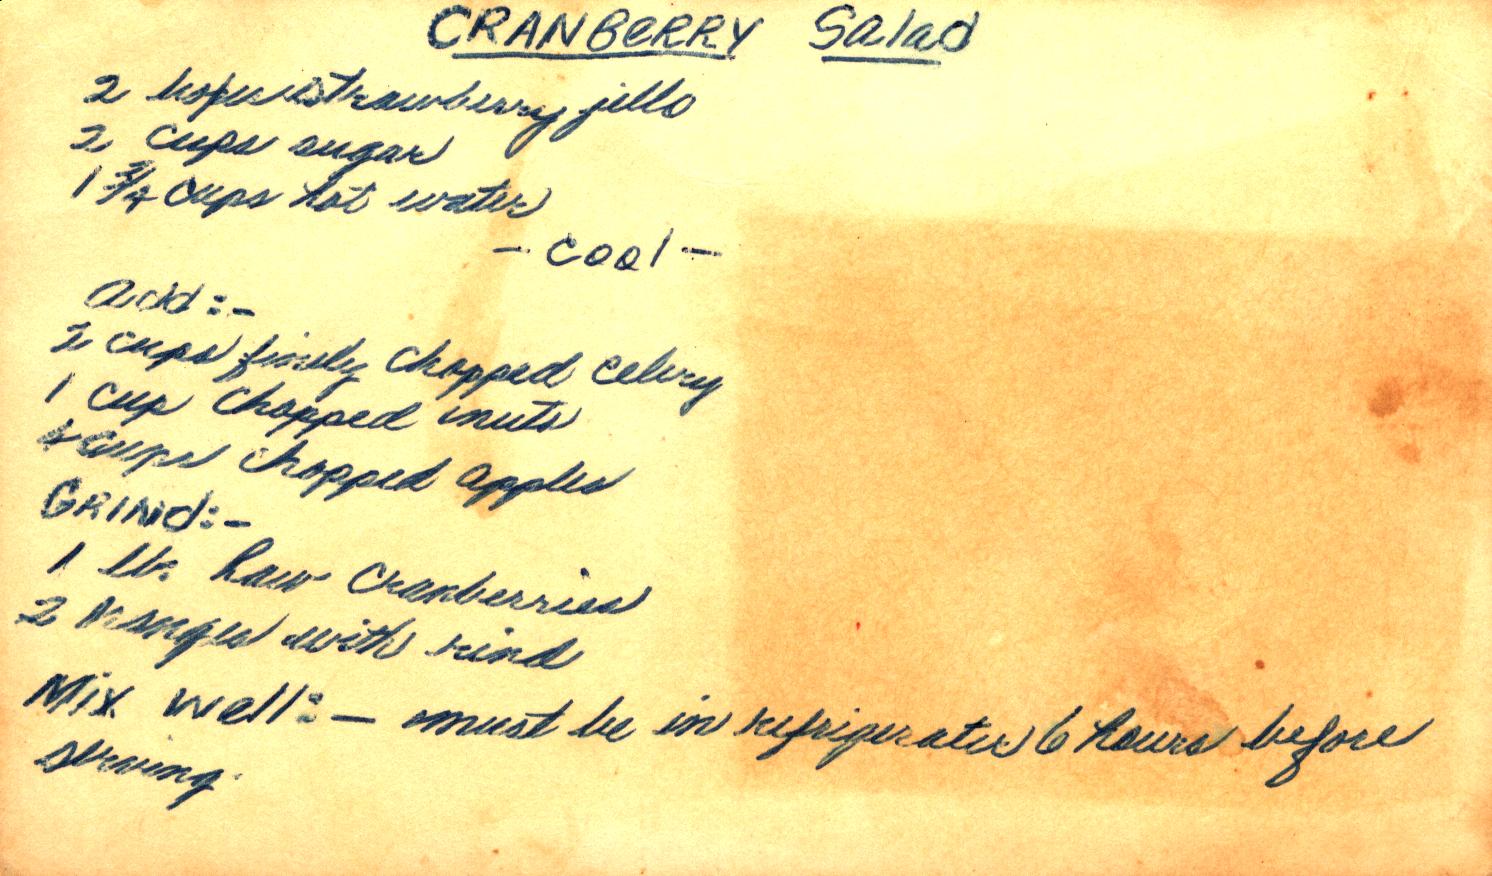 CRANBERRY Salad
2 boxes strawberry jello
2 cups sugar
1 3/4 cups hot water
- cool -
add:-
2 cups finely chopped celery
1 cup chopped nuts
cups chopped apples
GRINd:-
1 lb. Raw Cranberries
2 oranges with rind
Mix well:- must be in refrigerator 6 hours before
serving.